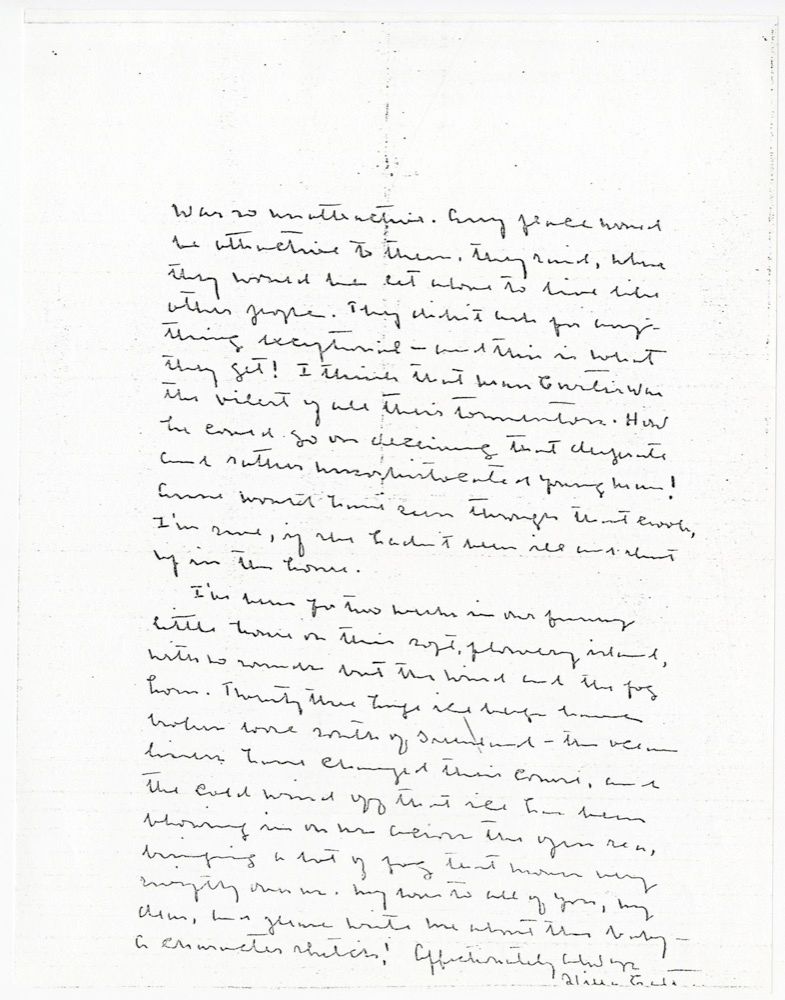 was so unattractive. Any place would
be attractive to them, they said, where
they would be let alone to live like
other people. They didn't ask for any-
thing exceptional – and this is what
they get! I think that man Curtis was
the vilest of all their tormentors. How
he could go on deceiving that desperate
and rather unsophisticated young man!
Anne would have seen through that crook,
I'm sure, if she hadn't been ill and shut
up in the house.
I've been for two weeks in our funny
little house on this soft, flowery island,
with no sounds but the wind and the fog
horn. Twenty three huge ice bergs have
broken loose south of Greenland – the ocean
liners have changed their course, and
the cold wind off that ice has been
blowing in on us across the open sea,
bringing a lot of fog that moves very
swiftly over us. My love to all of you, my
dear, and please write me about the baby –
a character sketch! Affectionately always